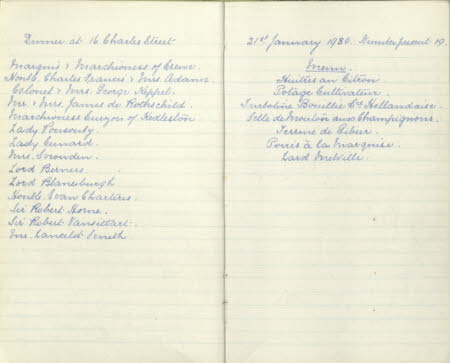 Dinner at 16 Charles Street
Marquis & Marchioness of Crewe.
Honble. Charles Francis & Mrs. Adams.
Colonel & Mrs. George Keppel.
Mr. & Mrs. James de Rothschild.
Marchioness Curzon of Kedleston
Lady Ponsonby.
Lady Cunard.
Mrs. Snowden.
Lord Berners.
Lord Blanesburgh
Honble. Evan Charteris.
Sir Robert Horne.
Sir Robert Vansittart.
Mr. Lancelot Smith.
21st January 1930. Number present 19.
Menu.
Huitres au Citron
Potage Cultivateur.
Turbotine Bouillie Sce Hollandaise.
Selle de Mouton aux Champignons.
Terrine de Gibier.
Poires à la Marquise.
Lard Melville.